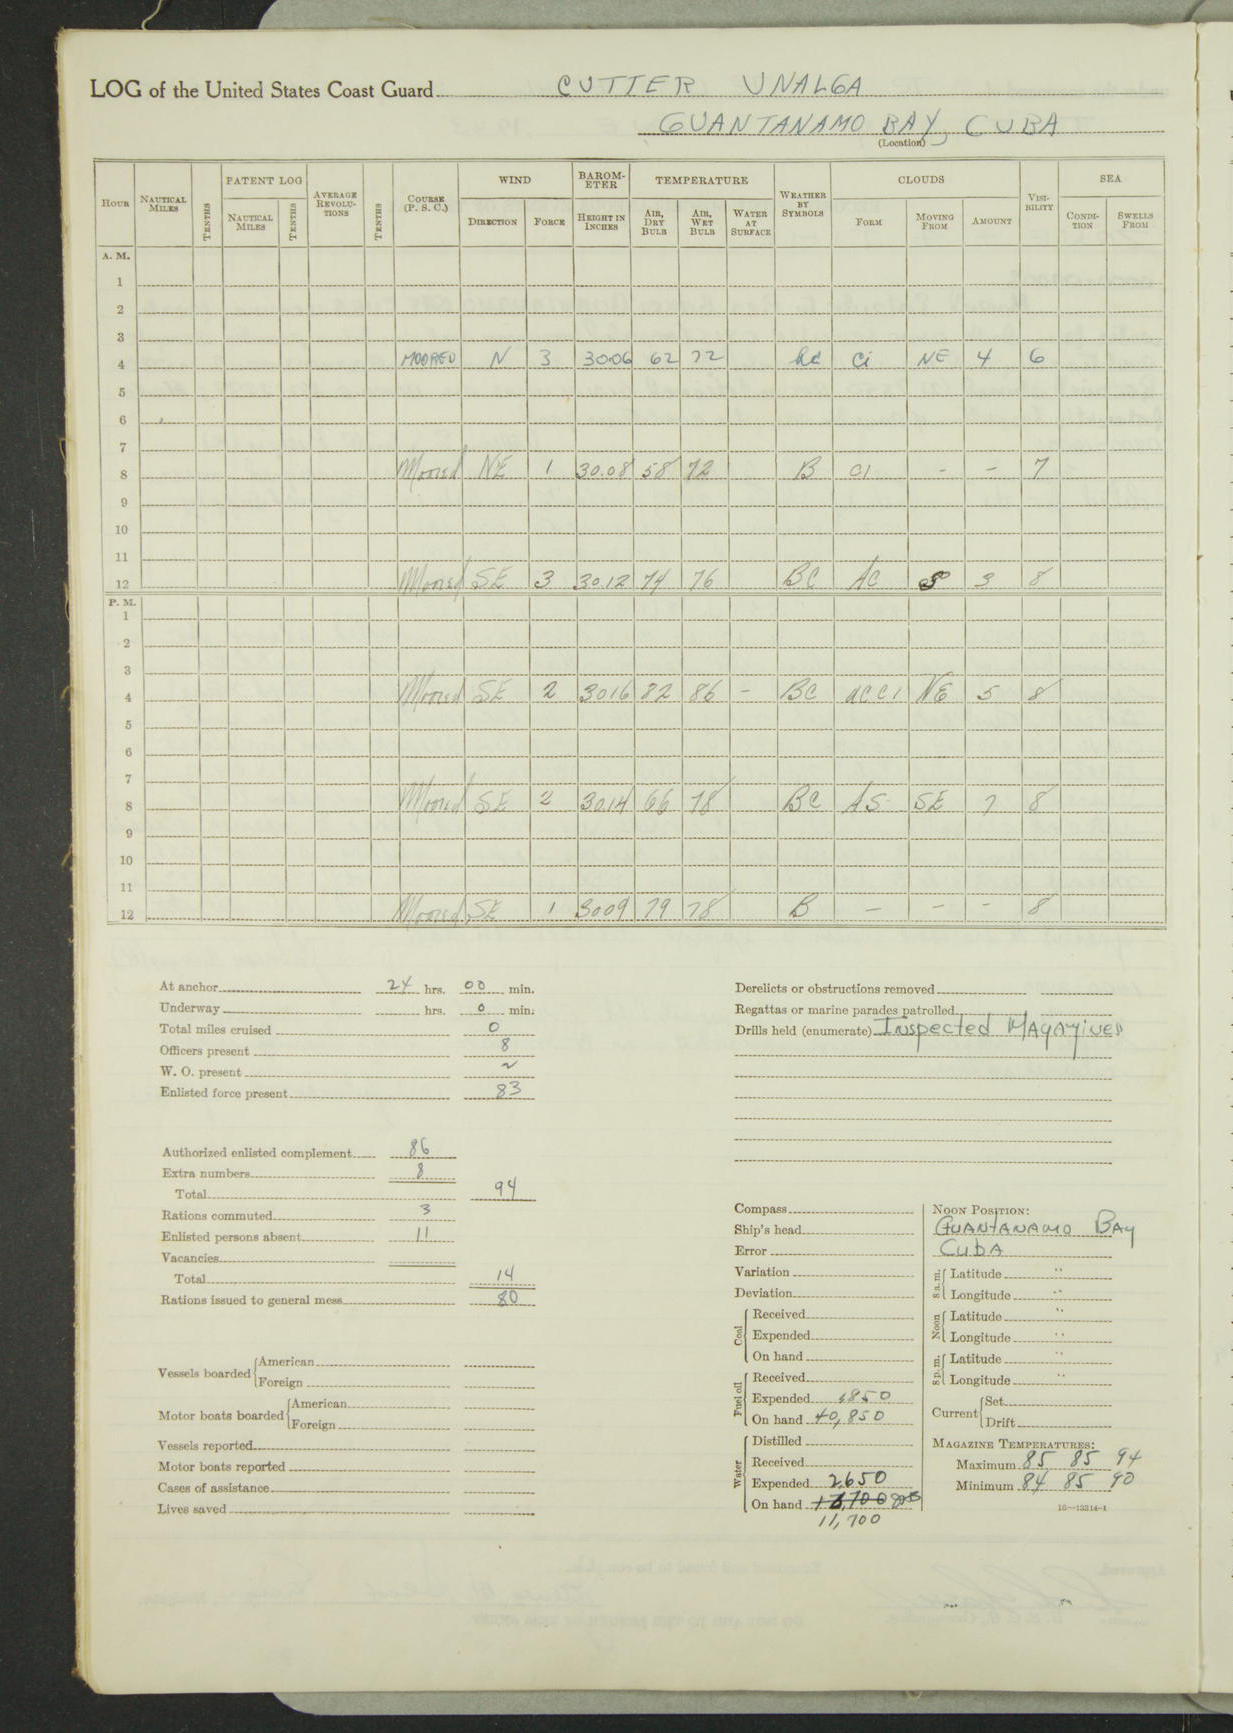 LOG of the United States Coast Guard CUTTER UNALGA
GUANTANAMO BAY, CUBA
(Location)
HOUR NAUTICAL MILES TENTHS PATENT LOG NAUTICAL MILES TENTHS AVERAGE REVOLU-TIONS TENTHS COURSE (P. S. C.) WIND DIRECTION FORCE BAROM-ETER HEIGHT IN INCHES TEMPERATURE AIR, DRY BULB AIR, WET BULB WATER AT SURFACE WEATHER BY SYMBOLS CLOUDS FORM MOVING FROM AMOUNT VISI-BILITY SEA CONDI-TION SWELLS FROM
A. M.
1
2
3
4 MOORED N 3 30.06 62 72 bc Ci NE 4 6
5
6
7
8 Moored NE 1 30.08 58 72 B CI - - 7
9
10
11
12 Moored SE 3 30.12 74 76 BC AC S 3 8
P. M.
1
2
3
4 Moored SE 2 3016 82 86 - BC ACCI NE 5 8
5
6
7
8 Moored SE 2 3014 66 78 BC AS SE 7 8
9
10
11
12 Moored SE 1 3009 79 78 B - - - 8
At anchor 24 hrs. 00 min.
Underway hrs. 0 min.
Total miles cruised 0
Officers present 8
W. O. present 2
Enlisted force present 83
Authorized enlisted complement 86
Extra numbers 8
Total 94
Rations commuted 3
Enlisted persons absent 11
Vacancies
Total 14
Rations issued to general mess 80
Vessels boarded American
Foreign
Motor boats boarded American
Foreign
Vessels reported
Motor boats reported
Cases of assistance
Lives saved
Derelicts or obstructions removed
Regattas or marine parades patrolled
Drills held (enumerate) Inspected Magazines
Compass
Ship's head
Error
Variation
Deviation
Coal Received
Expended
On hand
Fuel oil Received
Expended 850
On hand 40,850
Water Distilled
Received
Expended 2650
On hand
11,700
NOON POSITION:
GUANTANAMO BAY
CubA
8 a. m. Latitude "
Longitude "
Noon Latitude "
Longitude "
8 p. m. Latitude "
Longitude "
Current Set
Drift
MAGAZINE TEMPERATURES:
Maximum 85 85 94
Minimum 84 85 90
16—13314-1